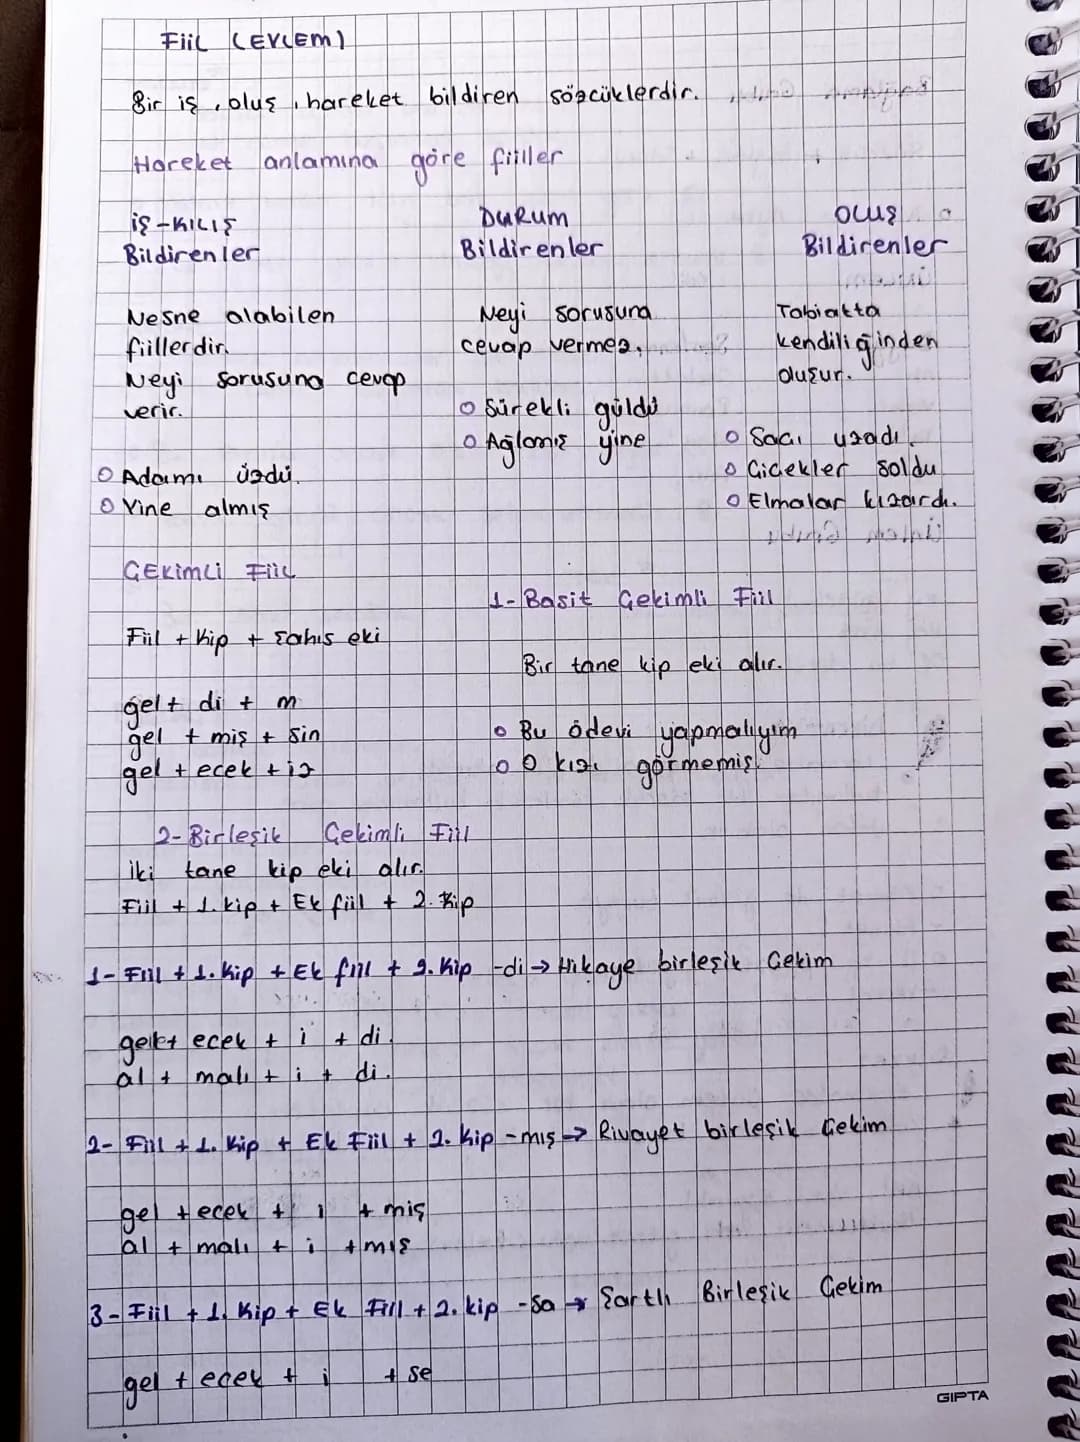 FiiL (EYLEM)
Bir iş, oluş, hareket bildiren sözcüklerdir.
Hareket anlamına göre fiiller
iş-KILIŞ
Bildirenler
Nesne alabilen
fiillerdir.
Neyi sorusuna cevap
verir.
o Adamı üzdü.
o Yine almış
DURUM
Bildirenler
Neyi sorusuna
cevap vermez.
o Sürekli güldü
o Ağlamış yine
OLUŞ
Bildirenler
Tabiatta
kendiliğinden
oluşur.
o Saçı uzadı.
o Çiçekler soldu
o Elmalar kızardı.
ÇEKİMLİ FİİL
Fiil + Kip + Şahıs eki
gel + di + m
gel + miş + sin
gel + ecek + iz
1- Basit Çekimli Fiil
Bir tane kip eki alır.
o Bu ödevi yapmalıyım
o O kızı görmemiş.
2- Birleşik Çekimli Fiil
İki tane kip eki alır.
Fiil + 1. kip + Ek fiil + 2. Kip
1- Fiil + 1. Kip + Ek fiil + 2. Kip -di → Hikaye birleşik Çekim
gel + ecek + i + di.
al + malı + i + di.
2- Fiil + 1. Kip + Ek Fiil + 2. Kip -mış → Rivayet birleşik Çekim
gel + ecek + i + miş
al + malı + i + mış
3- Fiil + 1. Kip + Ek Fiil + 2. kip -sa → Şartlı Birleşik Çekim
gel + ecek + i + se
GIPTA